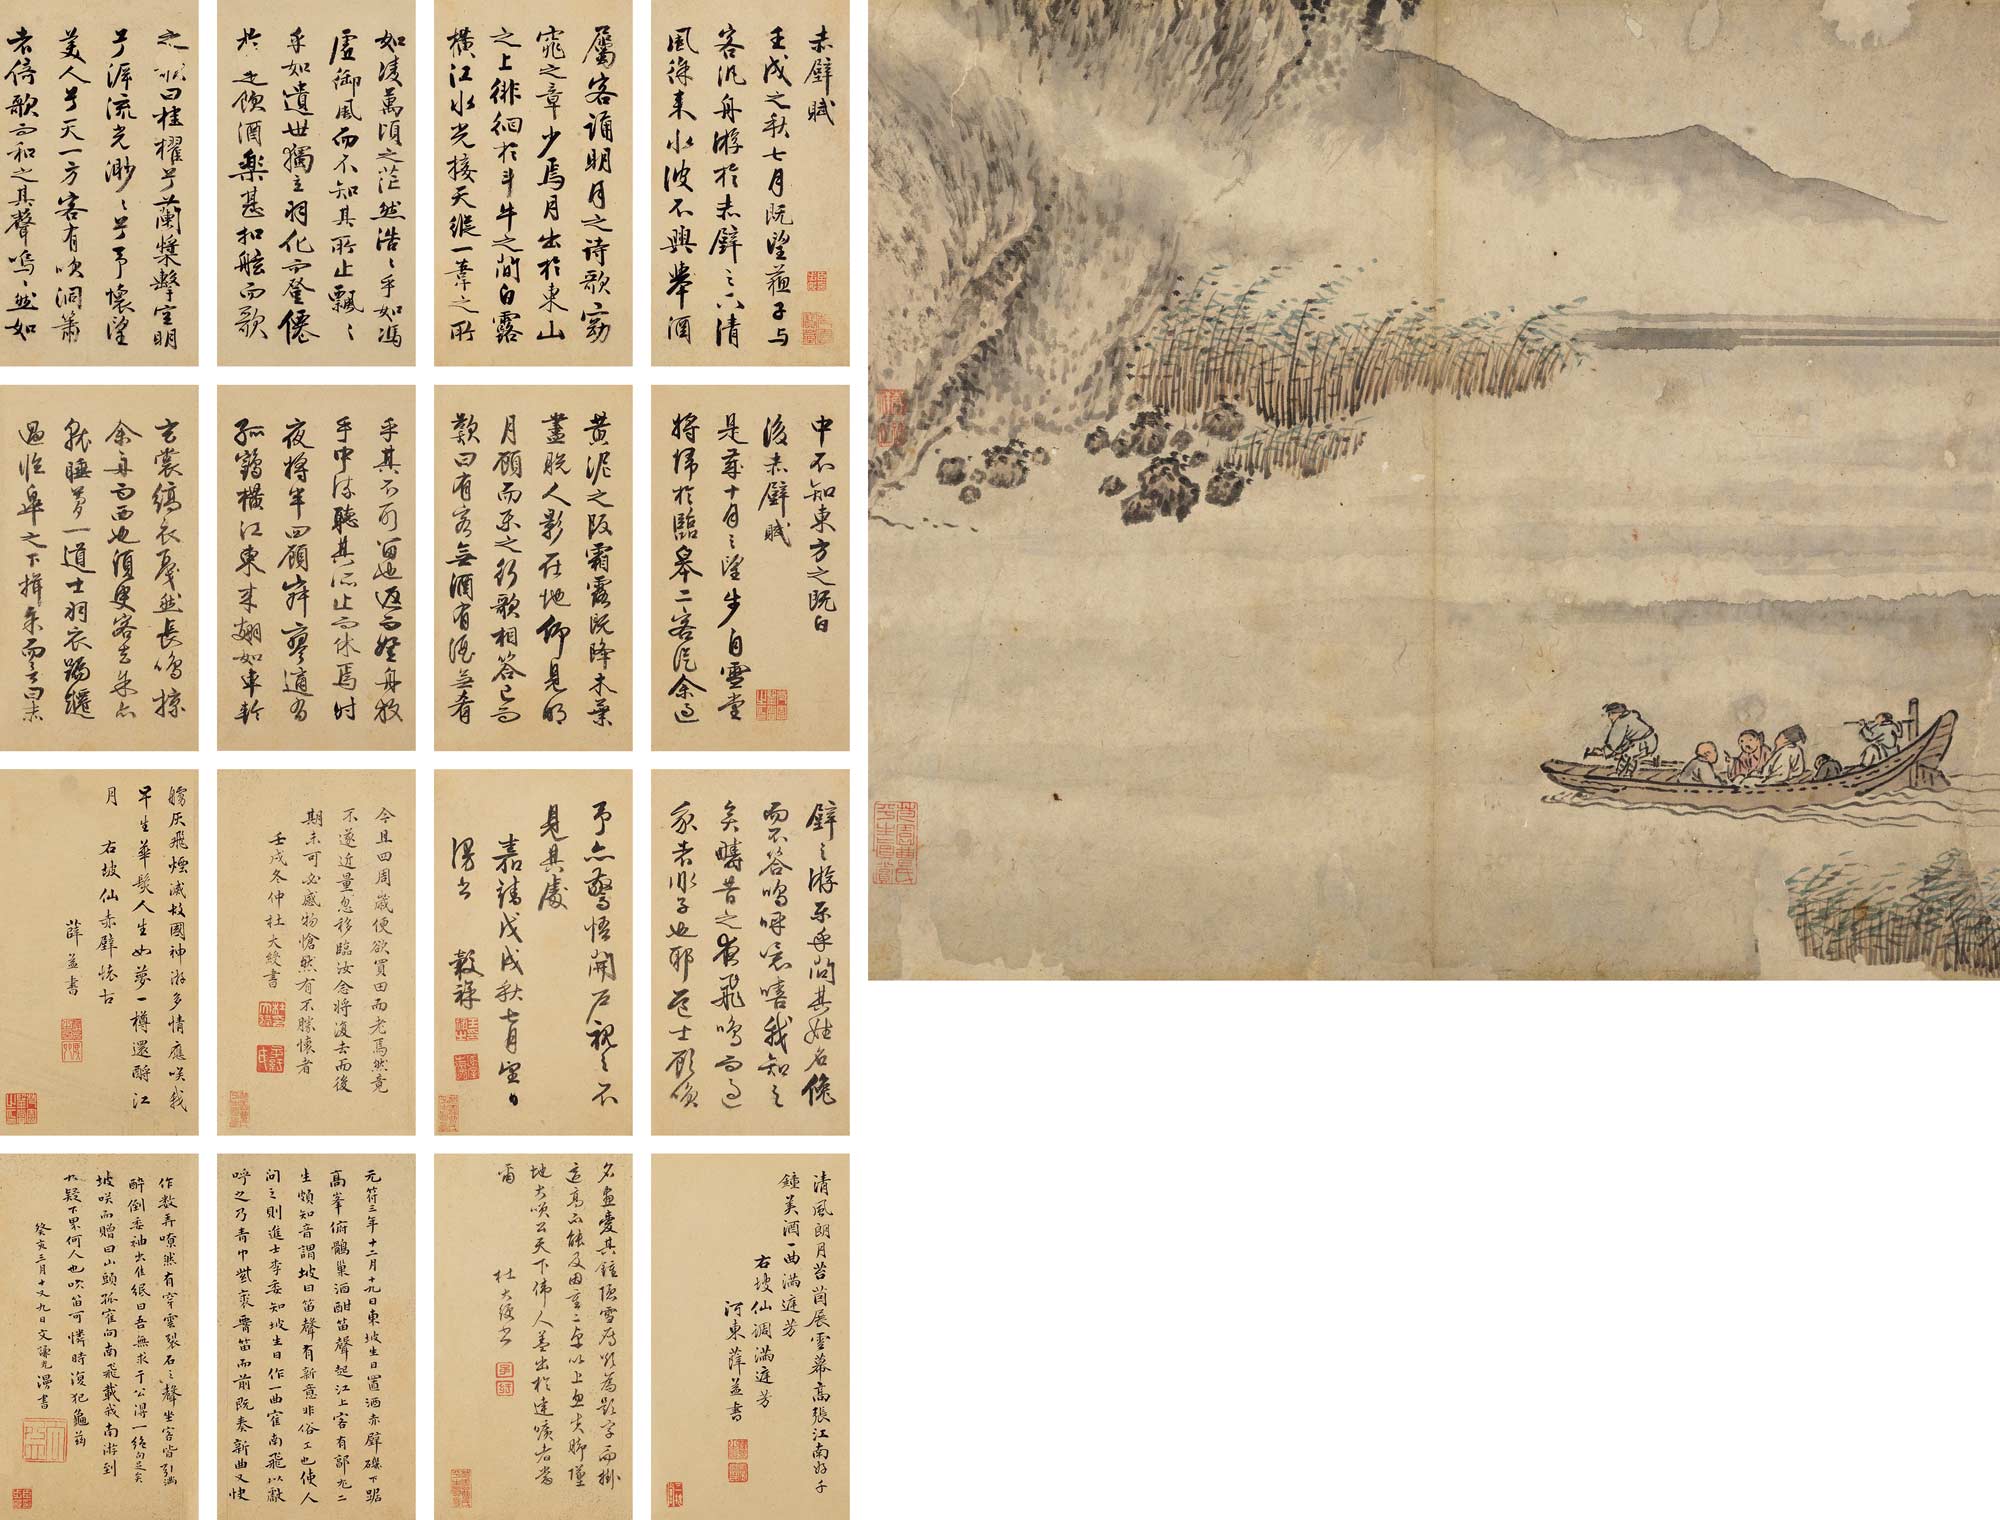 赤壁賦
壬戌之秋七月既望蘇子与
客汎舟游於赤壁之下清
風徐來水波不興舉酒
屬客誦明月之詩歌窈
窕之章少焉月出於東山
之上徘徊於斗牛之間白露
橫江水光接天縱一葦之所
如淩萬頃之茫然浩〻乎如馮
虛御風而不知其所止飄〻
乎如遺世獨立羽化而登僊
於是飲酒樂甚扣舷而歌
之歌曰桂櫂兮蘭槳擊空明
兮泝流光渺〻兮予懷望
美人兮天一方客有吹洞簫
者倚歌而和之其聲嗚〻然如
中不知東方之既白
後赤壁賦
是歲十月之望步自雪堂
將歸於臨皋二客從余過
黃泥之坂霜露既降木葉
盡脫人影在地仰見明
月顧而樂之行歌相答已而
歎曰有客無酒有酒無肴
乎其不可留也返而登舟放
乎中流聽其所止而休焉時
夜將半四顧寂寥適有
孤鶴橫江東來翅如車輪
玄裳縞衣戛然長鳴掠
余舟而西也須臾客去余亦
就睡夢一道士羽衣蹁躚
過臨皋之下揖余而言曰赤
壁之游樂乎問其姓名俛
而不答嗚呼噫嘻我知之
矣疇昔之夜飛鳴而過
我者非子也耶道士顧笑
予亦驚悟開戶視之不
見其處
嘉靖戊戌秋七月望日
漫書 穀祥
今且四周歲便欲買田而老焉然竟
不遂近量忽移臨汝念將復去而後
期未可必感物愴然有不勝懷者
壬戌冬仲杜大綬書
艣灰飛煙滅故國神游多情應笑我
早生華髮人生如夢一樽還酹江
月
右坡仙赤壁懷古
薛益書
清風朗月苔茵展雲幕高張江南好千
鍾美酒一曲滿庭芳
右坡仙調滿庭芳
河東薛益書
名畫愛其鍾隱雪
這高不能及因重二
地大笑公天下偉人蓋出於達曠者當
爾
杜大綬書
元符三年十二月十九日東坡生日置酒赤壁磯下踞
高峯俯鶻巢酒酣笛聲起江上客有郭尤二
生頗知音謂坡曰笛聲有新意非俗工也使人
問之則進士李委知坡生日作一曲寉南飛以獻
呼之乃青巾紫裘腰笛而前既奏新曲又快
作數弄嘹然有穿雲裂石之聲坐客皆引滿
醉倒委袖出隹紙曰吾無求于公得一絕句足矣
坡咲而贈曰山頭孤寉向南飛載我南游到
九疑下界何人也吹笛可憐時復犯龜茲
癸亥三月十又九日文謙光漫書